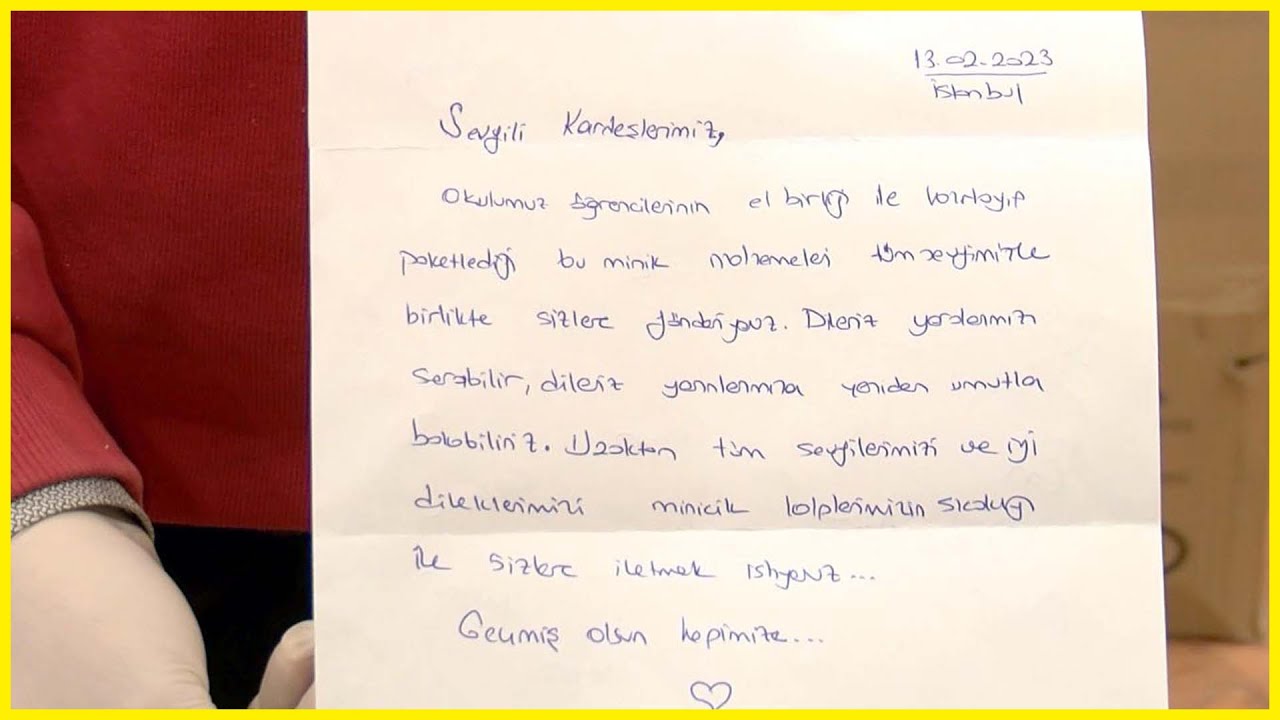 13.02.2023
İstanbul
Sevgili Kardeşlerimiz,
Okulumuz öğrencilerinin el birliği ile hazırlayıp
paketlediği bu minik malzemeleri tüm sevgimizle
birlikte sizlere gönderiyoruz. Dileriz yaralarımızı
sarabilir, dileriz yarınlarımıza yeniden umutla
bakabiliriz. Uzaktan tüm sevgilerimizi ve iyi
dileklerimizi minicik kalplerimizin sıcaklığı
ile sizlere iletmek istiyoruz...
Geçmiş olsun hepimize...